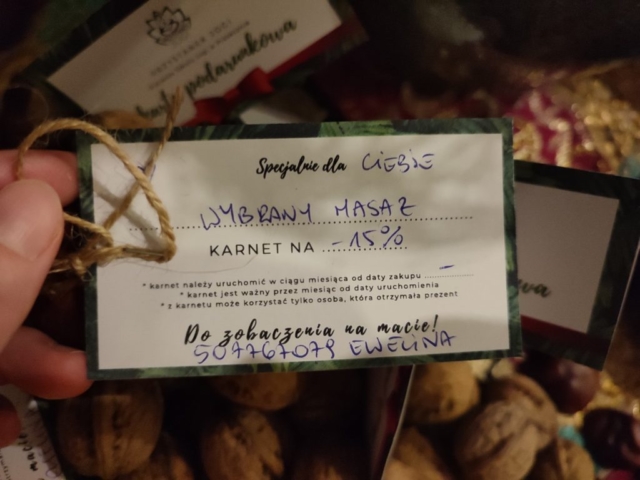 PRZYSTANEK JOGI
podarunkowa
Specjalnie dla CIEBIE
WYBRANY MASAŻ
KARNET NA -15%
* karnet należy uruchomić w ciągu miesiąca od daty zakupu -
* karnet jest ważny przez miesiąc od daty uruchomienia
* z karnetu może korzystać tylko osoba, która otrzymała prezent
Do zobaczenia na macie!
507767079 EWELINA